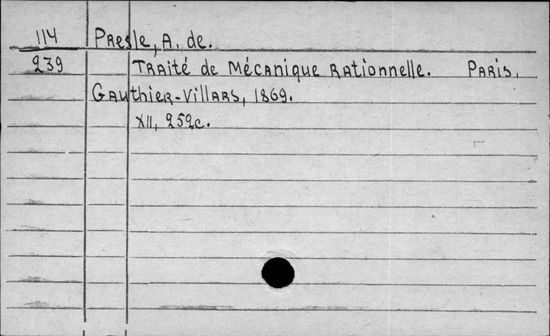 114 Presle, A. de.
239 Traité de Mécanique Rationnelle. Paris,
Gauthier-Villars, 1869.
XII, 252c.